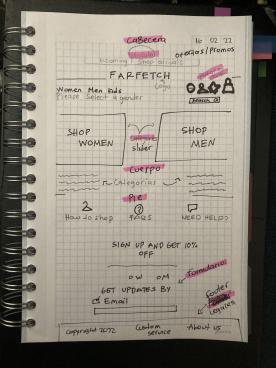 Cabecera
16 02 22
ofertas/promos
Incoming Shop arrivals
FARFETCH
Logo
Women Men Kids
Please Select a gender
Search
SHOP
WOMEN
slider
SHOP
MEN
Cuerpo
Categorias
Pie
How to shop
FAQS
NEED HELP?
SIGN UP AND GET 10%
OFF
OW OM
Formulario
GET UPDATES BY
Email
Footer
Legales
Copyright 2022
Custom
service
About us